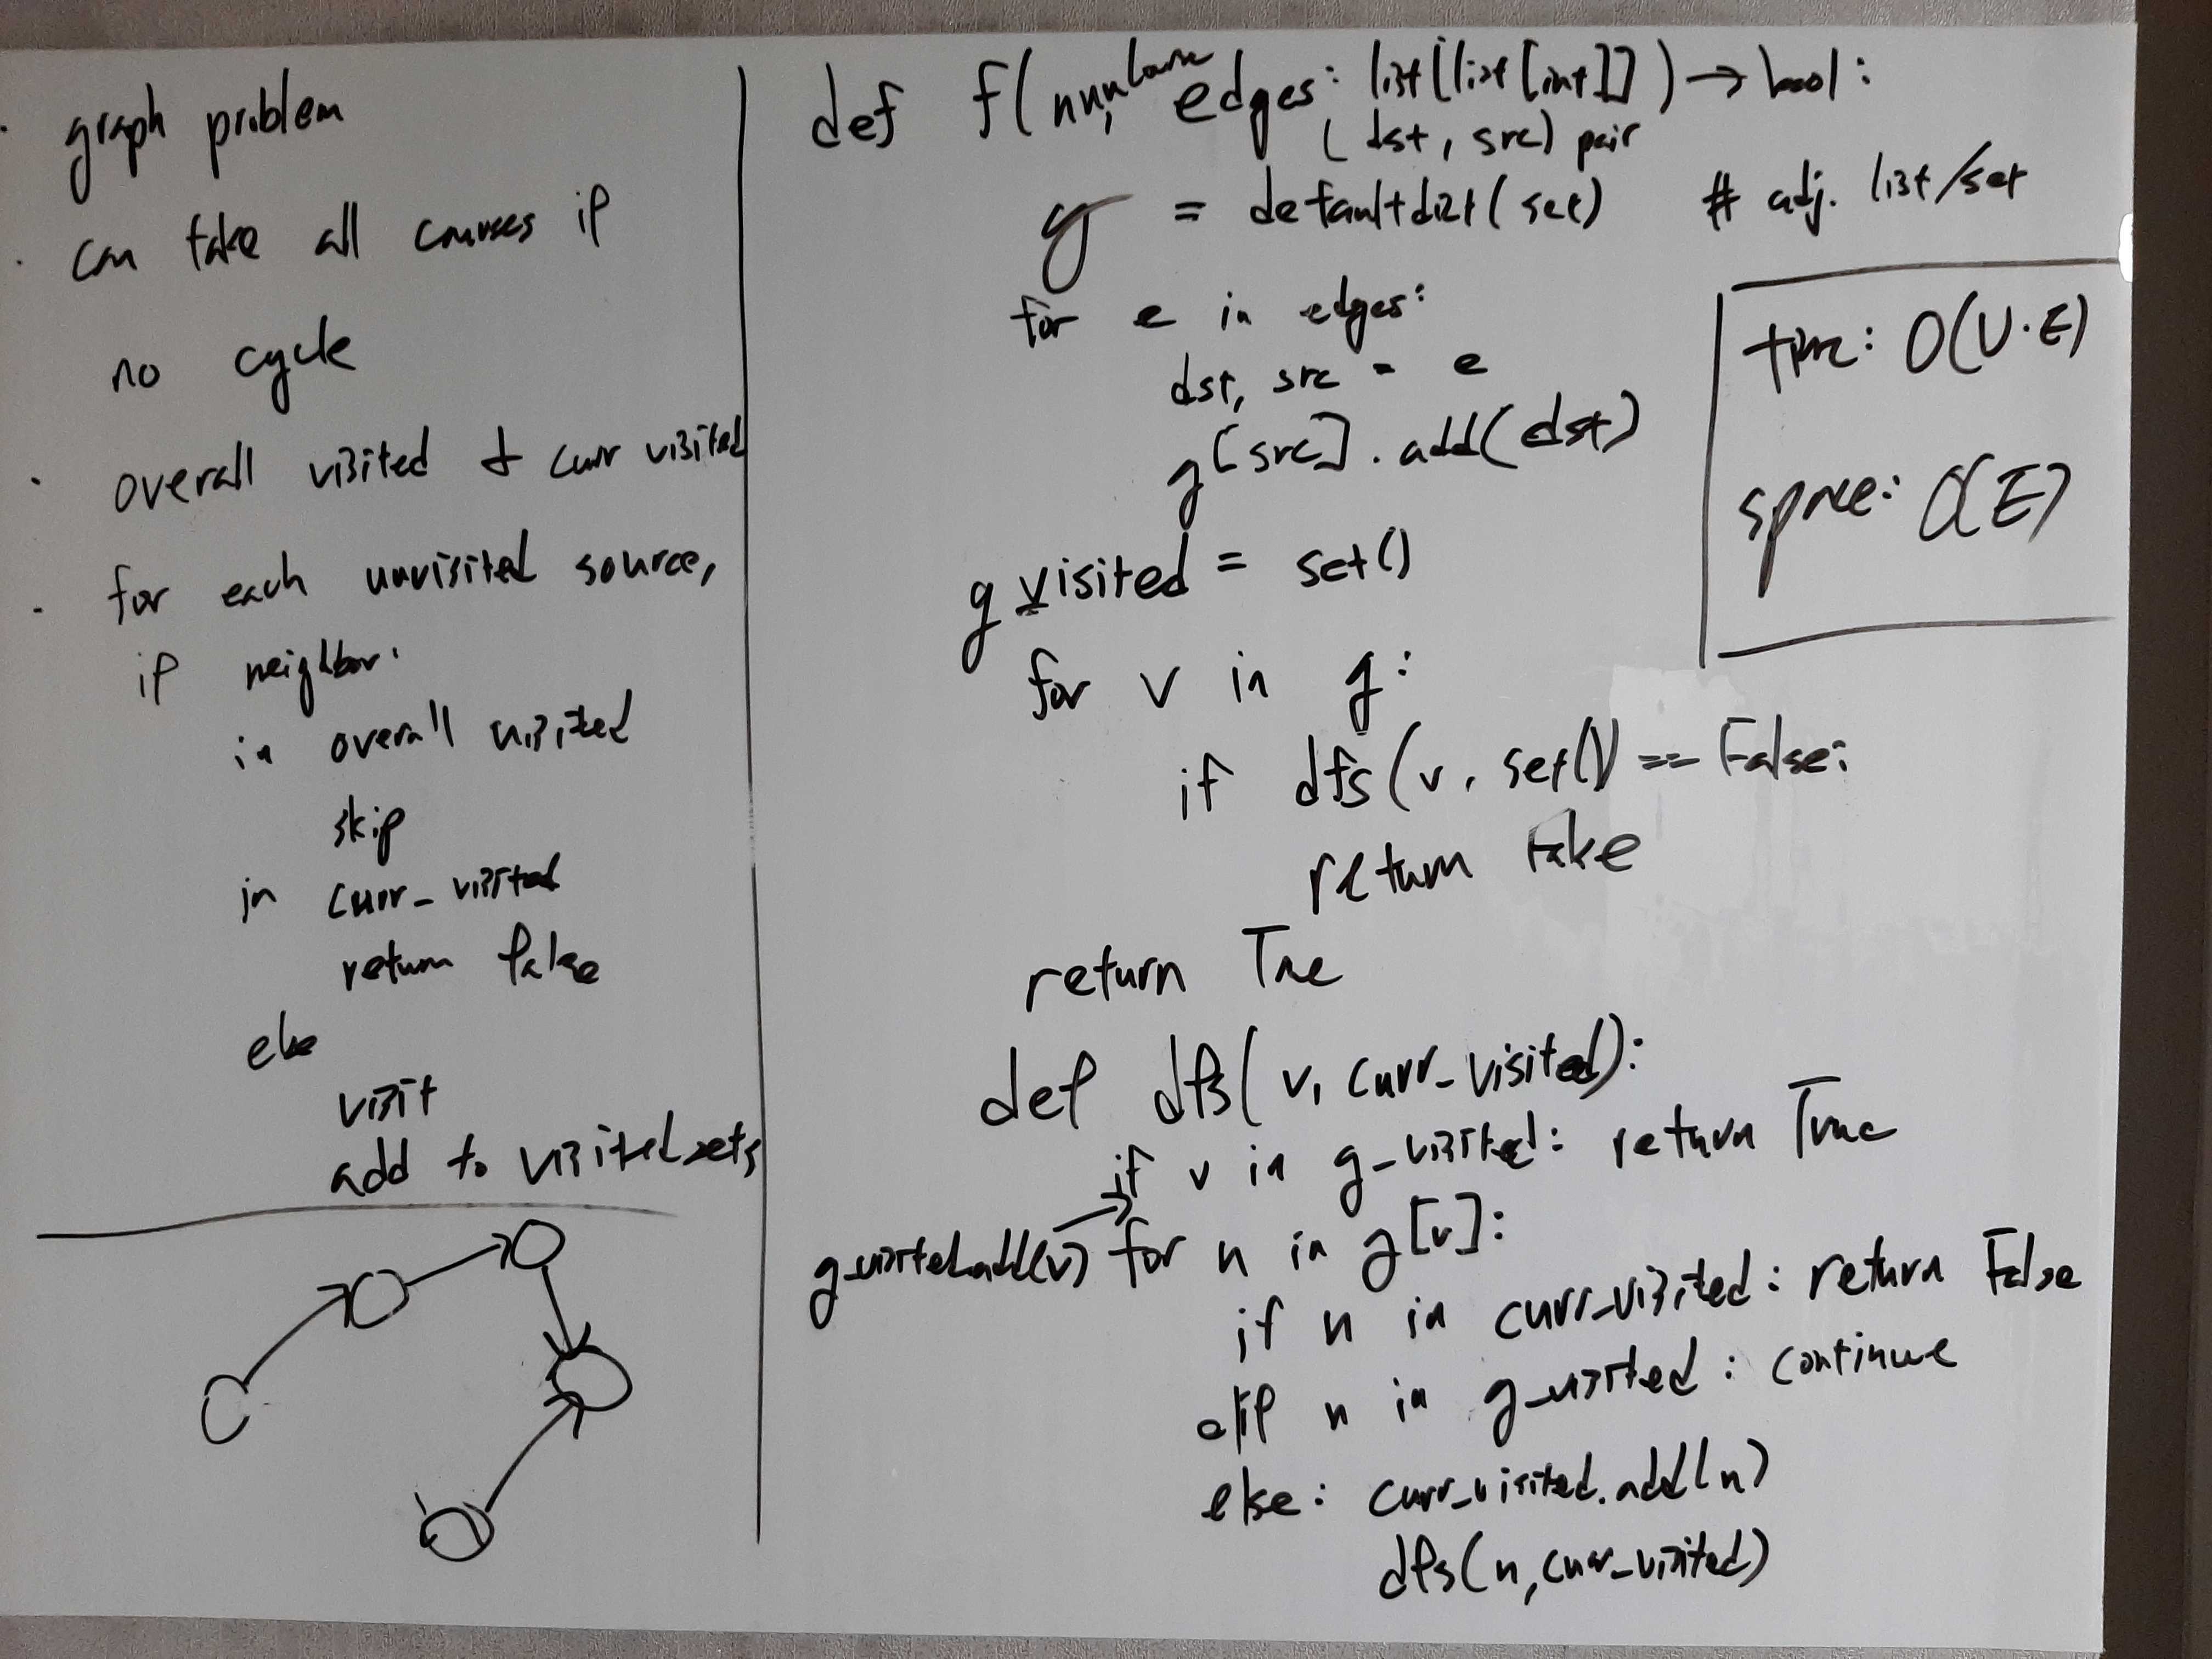 graph problem
can take all courses if
no cycle
overall visited & curr visited
for each unvisited source,
if neighbor:
in overall visited
skip
in curr_visited
return false
else
visit
add to visited sets
def f(num, edges: list[list[int]]) → bool:
(dst, src) pair
g = defaultdict(set) # adj. list/set
for e in edges:
dst, src = e
g[src].add(dst)
g_visited = set()
for v in g:
if dfs(v, set()) == False:
return False
return True
def dfs(v, curr_visited):
if v in g_visited: return True
g_visited.add(v) → for n in g[v]:
if n in curr_visited: return False
elif n in g_visited: continue
else: curr_visited.add(n)
dfs(n, curr_visited)
time: O(V·E)
space: O(E)